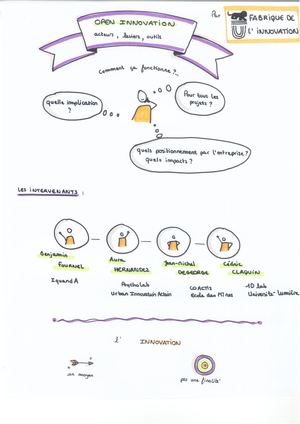 OPEN INNOVATION
acteurs, leviers, outils
Par
FABRIQUE DE
L'INNOVATION
comment ça fonctionne ?..
quelle implication
?
Pour tous les
projets ?
quels positionnement par l'entreprise ?
quels impacts ?
LES INTERVENANTS :
Benjamin
FOURNEL
IquandA
Aura
HERNANDEZ
PsychoLab
Urban Innovation Action
Jean-Michel
DEGEORGE
COACTIS
École des Mines
Cédric
CLAQUIN
LD lab
Université Lumière
L' INNOVATION
un moyen
pas une finalité